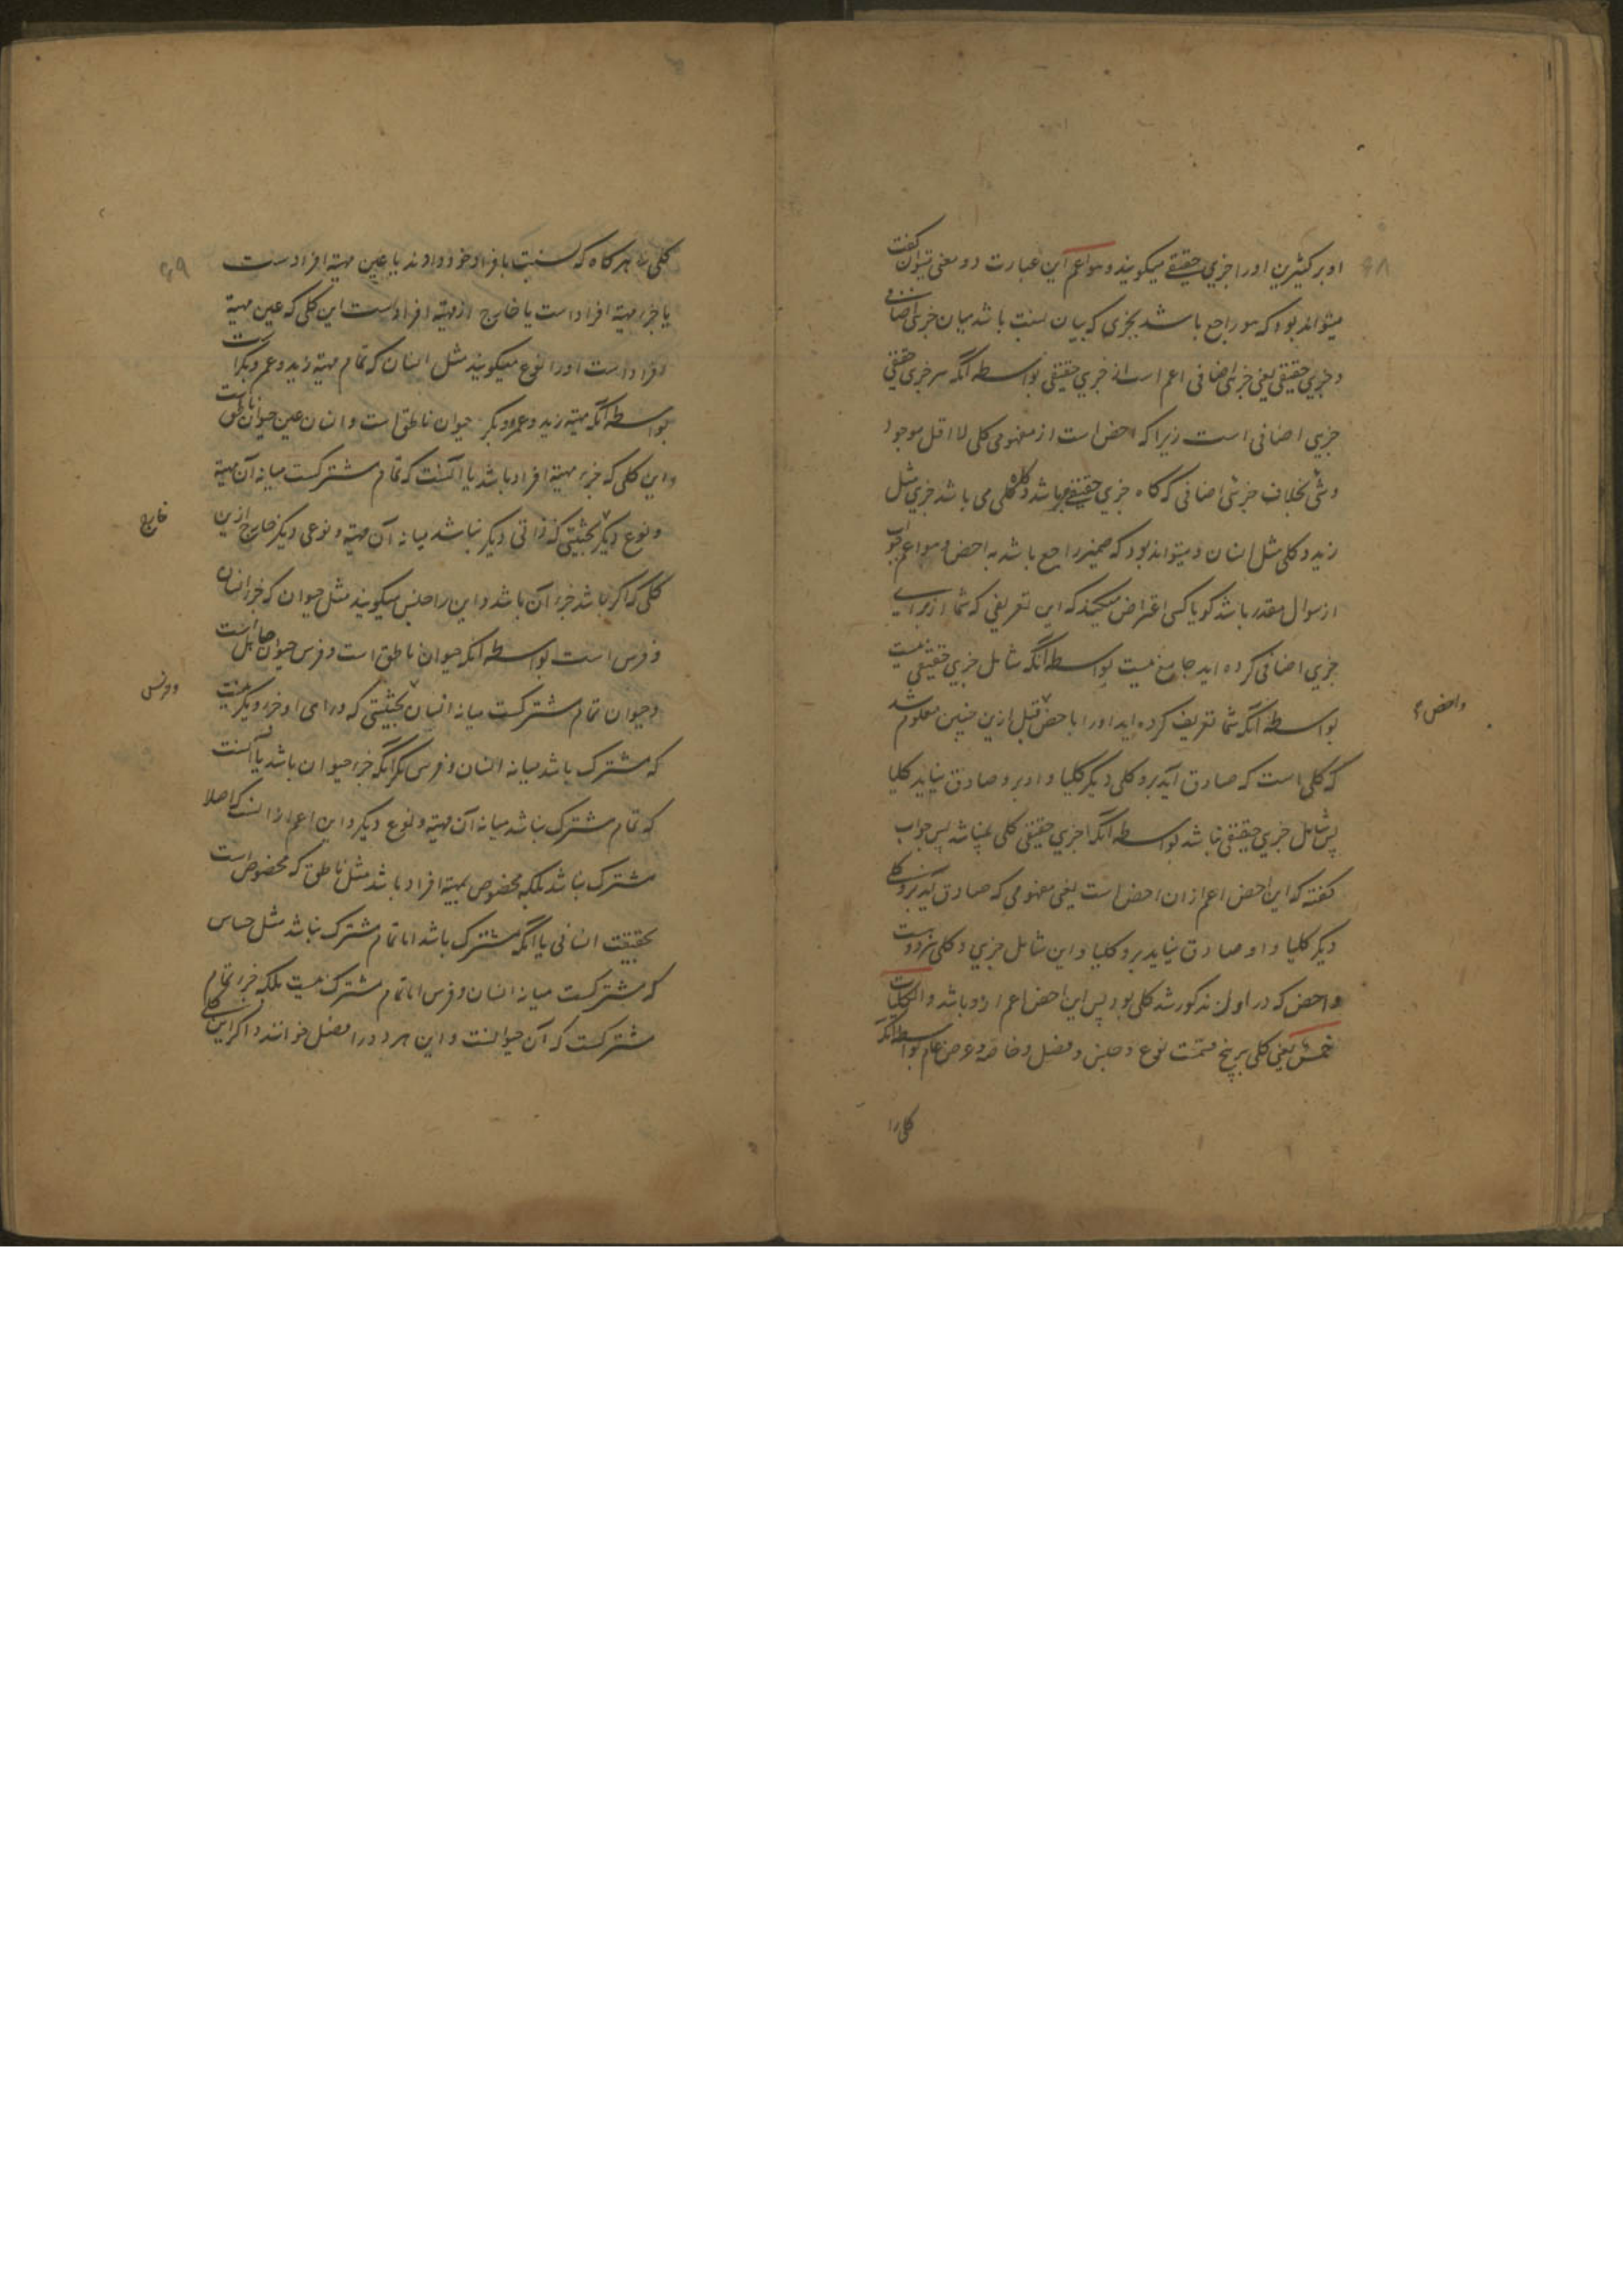 او بر کثیرین اورا جزیی حقیقے میکویند وهواعم این عبارت دو معنی میتوان کفت
میتواند بود که هو راجع باشد بجزی که بیان نسبت باشد میان جزیی اضافی
و جزیی حقیقی یعنی جزئی اضافی اعم است از جزیی حقیقی بواسطه انکه هر جزیی حقیقی
جزیی اضافی است زیرا که اخص است از مفهومی کلی لا اقل موجود
و شی بخلاف جزئی اضافی که کاه جزیی حقیقے میباشد و کاه کلی می باشد جزیی مثل
زید و کلی مثل انسان و میتواند بود که ضمیر راجع باشد به اخص وهو اعم جواب
از سوال مقدر باشد کویا کسی اعتراض میکند که این تعریفی که شما از برای
جزیی اضافی کرده اید جامع نیست بواسطه انکه شامل جزیی حقیقی نیست
بواسطه انکه شما تعریف کرده اید اورا باخص قبل ازین چنین معلوم شد
که کلی است که صادق آید برو کلی دیکر کلیا و او برو صادق نیاید کلیا
پس شامل جزیی حقیقی نباشد بواسطه انکه جزیی حقیقی کلی نمیباشد پس جواب
کفته که این اخص اعم از ان اخص است یعنی مفهومی که صادق آید برو کلے
دیکر کلیا و او صادق نیاید برو کلیا و این شامل جزیی و کلی هردوست
و اخص که در اول مذکور شد کلی بود پس این اخص اعم ازو باشد والکلیات
خمس یعنی کلی بر پنج قسمت نوع و جنس و فصل و خاصه و عرض عام بواسطه انکه
کلی را
واخص
۴۹
کلی را هرکاه که نسبت بافراد خود دادند یا عین مهیة افرادست
یا جزء مهیة افراد است یا خارج از مهیة افرادست این کلی که عین مهیة
افراد است اورا نوع میکویند مثل انسان که تمام مهیة زید و عمرو و بکرست
بواسطه انکه مهیة زید و عمرو و بکر حیوان ناطق است و انسان عین حیوان ناطق است
واین کلی که جزء مهیة افراد باشد یا آنست که تمام مشترکست میانه آن مهیة
و نوع دیکر بحیثیتی که ذاتی دیکر نباشد میانه آن مهیة و نوعی دیکر خارج ازین
خارج
کلی که اکر باشد جزء آن باشد و این را جنس میکویند مثل حیوان که جزء انسان
و فرس است بواسطه انکه حیوان ناطق است و فرس حیوان صاهل است
و حیوان تمام مشترکست میانه انسان بحیثیتی که ورای او جزء دیکر نیست
و فرس
که مشترک باشد میانه انسان و فرس مکر انکه جزء حیوان باشد یا آنست
که تمام مشترک نباشد میانه آن مهیة و نوع دیکر و این اعم از انست که اصلا
مشترک نباشد بلکه مخصوص بمهیة افراد باشد مثل ناطق که مخصوص است
بحقیقت انسانی یا انکه مشترک باشد اما تمام مشترک نباشد مثل حساس
که مشترکست میانه انسان و فرس اما تمام مشترک نیست بلکه جزء تمام
مشترکست که آن حیوانست و این هر دو را فصل خوانند و اکر این کلے